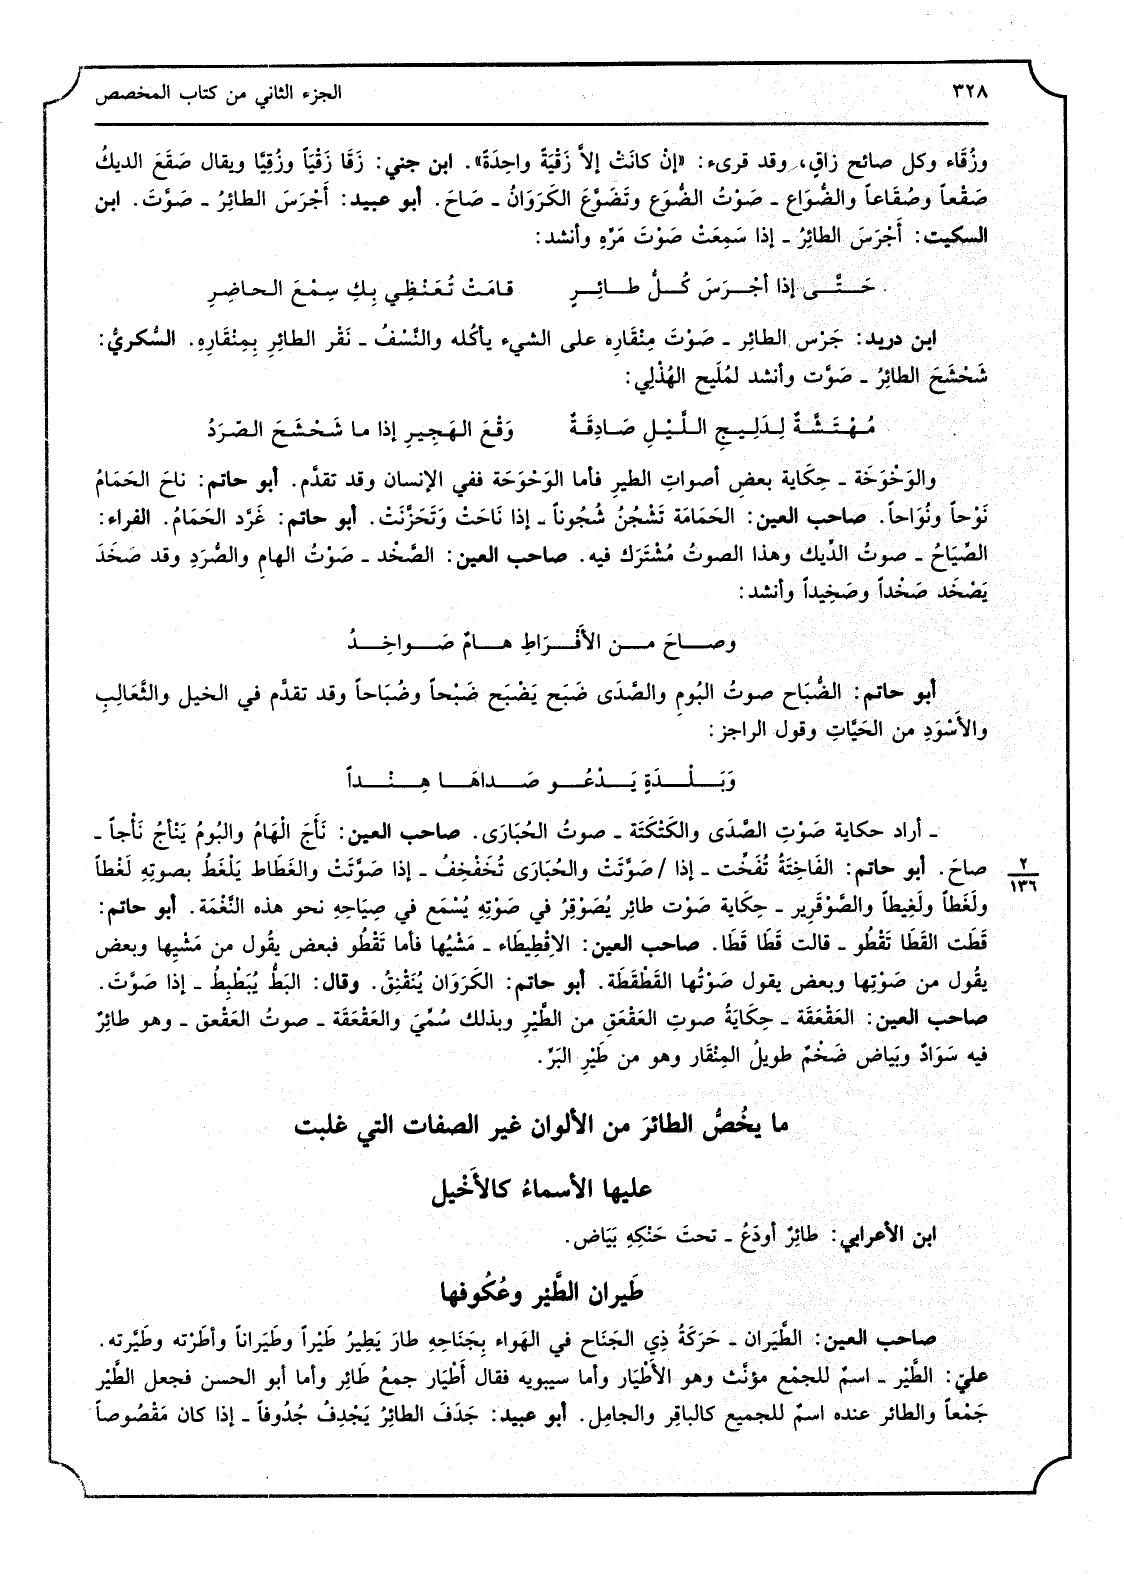 ٣٢٨ الجزء الثاني من كتاب المخصص
وزُقَاء وكل صائح زاقٍ، وقد قرىء: «إنْ كانَتْ إلاَّ زَقْيَةً واحِدَةً». ابن جني: زَقَا زَقْيَاً وزُقِيًّا ويقال صَقَعَ الديكُ
صَقْعاً وصُقَاعاً والضُّوَاع ـ صَوْتُ الضُّوَع وتَضَوَّعَ الكَرَوَانُ ـ صَاحَ. أبو عبيد: أَجْرَسَ الطائِرُ ـ صَوَّتَ. ابن
السكيت: أَجْرَسَ الطائِرُ ـ إذا سَمِعَتْ صَوْتَ مَرِّهِ وأنشد:
حَتَّى إذا أجْرَسَ كُلُّ طائِرٍ قامَتْ تُعَنْظِي بِكِ سِمْعَ الحاضِرِ
ابن دريد: جَرْس الطائِر ـ صَوْتَ مِنْقَارِه على الشيء يأكُله والنَّسْفُ ـ نَقْر الطائِرِ بِمِنْقَارِهِ. السُّكريُّ:
شَحْشَحَ الطائِرُ ـ صَوَّت وأنشد لمُلَيح الهُذْلِي:
مُهْتَشَّةٌ لِدَلِيجِ اللَّيْلِ صَادِقَةٌ وَقْعَ الهَجِيرِ إذا ما شَحْشَحَ الصّرَدُ
والوَخْوَخَة ـ حِكاية بعضِ أصواتِ الطيرِ فأما الوَحْوَحَة ففي الإنسان وقد تقدَّم. أبو حاتم: ناحَ الحَمَامُ
نَوْحاً ونُوَاحاً. صاحب العين: الحَمَامَة تَشْجُنُ شُجُوناً ـ إذا نَاحَتْ وَتَحَزَّنَتْ. أبو حاتم: غَرَّد الحَمَامُ. الفراء:
الصِّيَاحُ ـ صوتُ الدِّيك وهذا الصوتُ مُشْتَرَك فيه. صاحب العين: الصَّخْد ـ صَوْتُ الهامِ والصُّرَدِ وقد صَخَدَ
يَصْخَد صَخْداً وصَخِيداً وأنشد:
وصاحَ من الأَفْرَاطِ هامٌ صَواخِدُ
أبو حاتم: الضُّبَاح صوتُ البُومِ والصَّدَى ضَبَح يَضْبَح ضَبْحاً وضُبَاحاً وقد تقدَّم في الخيل والثَّعَالِبِ
والأَسْوَدِ من الحَيَّاتِ وقول الراجز:
وَبَلْدَةٍ يَدْعُو صَداهَا هِنْداً
ـ أراد حكاية صَوْتِ الصَّدَى والكَتْكَتَة ـ صوتُ الحُبَارَى. صاحب العين: نَأَجَ الْهَامُ والبُومُ يَنْأجُ نَأْجاً ـ
صاحَ. أبو حاتم: الفَاخِتَةُ تُفَخِّت ـ إذا / صَوَّتَتْ والحُبارَى تُخَفْخِفُ ـ إذا صَوَّتَتْ والغَطَاط يَلْغَطُ بصوتِهِ لَغْطاً
٢
١٣٦
ولَغَطاً ولَغِيطاً والصَّوْقَرِير ـ حِكاية صَوْت طائِر يُصَوْقِرُ في صَوْتِهِ يُسْمَع في صِيَاحِهِ نحو هذه النَّغْمَة. أبو حاتم:
قَطَت القَطَا تَقْطُو ـ قالت قَطَا قَطَا. صاحب العين: الاقْطِيطَاء ـ مَشْيُها فأما تَقْطُو فبعض يقُول من مَشْيِها وبعض
يقُول من صَوْتِها وبعض يقول صَوْتُها القَطْقَطَة. أبو حاتم: الكَرَوَان يُنَقْنِقُ. وقال: البَطُّ يُبَطْبِطُ ـ إذا صَوَّتَ.
صاحب العين: العَقْعَقَة ـ حِكايَةُ صوتِ العَقْعَقِ من الطَّيْرِ وبذلك سُمِّيَ والعَقْعَقَة ـ صوتُ العَقْعق ـ وهو طائِرٌ
فيه سَوَادٌ وبَياض ضَخْمٌ طويلُ المِنْقَار وهو من طَيْرِ البَرِّ.
ما يخُصُّ الطائرَ من الألوان غير الصفات التي غلبت
عليها الأسماءُ كالأَخْيل
ابن الأعرابي: طائِرٌ أودَعُ ـ تحتَ حَنَكِهِ بَيَاض.
طَيران الطَّيْر وعُكُوفها
صاحب العين: الطَّيَران ـ حَرَكَةُ ذِي الجَنَاح في الهَواء بِجَناحِهِ طارَ يَطِيرُ طَيْراً وطَيَراناً وأطَرْته وطَيَّرته.
عليّ: الطَّيْر ـ اسمٌ للجمْع مؤنَّث وهو الأَطْيَار وأما سيبويه فقال أَطْيَار جمعُ طَائِر وأما أبو الحسن فجعل الطَّيْر
جَمْعاً والطائر عنده اسمٌ للجميع كالباقِر والجامِل. أبو عبيد: جَدَفَ الطائِرُ يَجْدِفُ جُدُوفاً ـ إذا كان مَقْصُوصاً